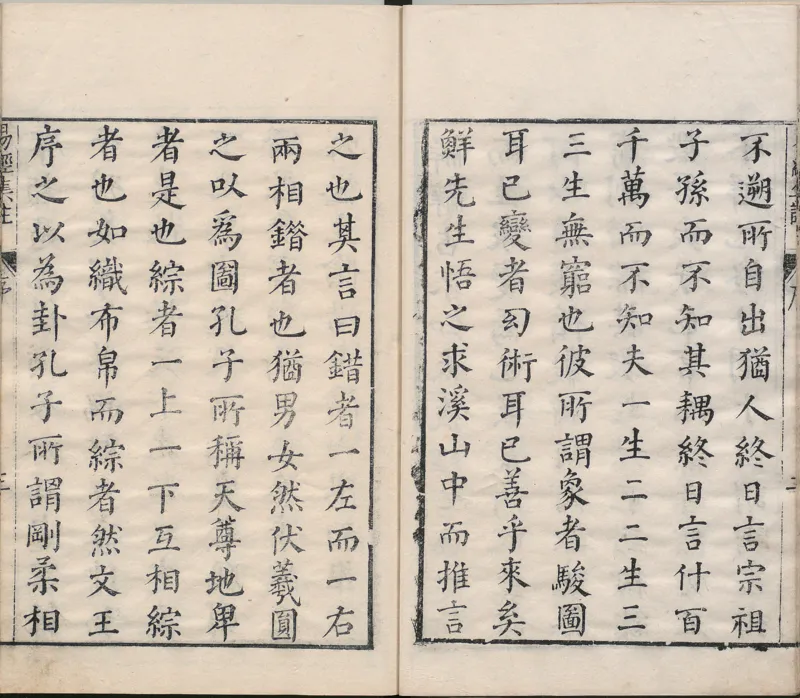 不遡所自出猶人終日言宗祖
子孫而不知其耦終日言什百
千萬而不知夫一生二二生三
三生無窮也彼所謂象者駿圖
耳已變者幻術耳已善乎來矣
鮮先生悟之求溪山中而推言
之也其言曰錯者一左而一右
兩相錯者也猶男女然伏羲圓
之以爲圖孔子所稱天尊地卑
者是也綜者一上一下互相綜
者也如織布帛而綜者然文王
序之以為卦孔子所謂剛柔相
易經集註
序
三